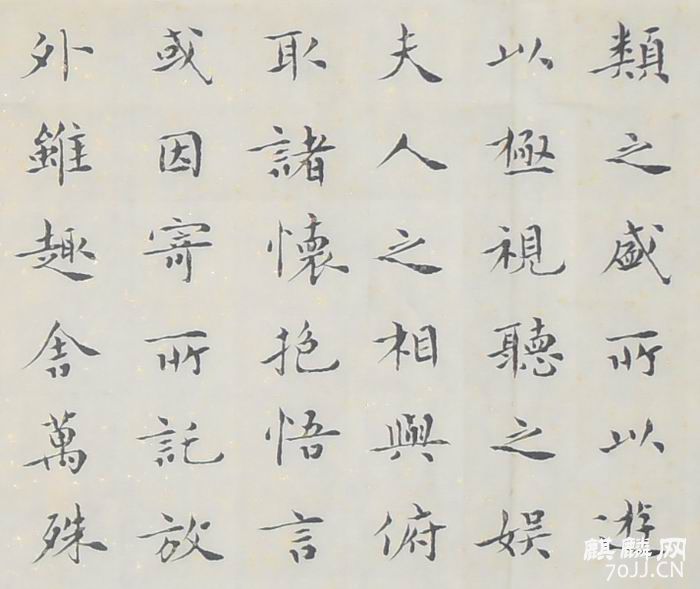 類之盛所以遊
以極視聽之娛
夫人之相與俯
取諸懷抱悟言
或因寄所託放
外雖趣舍萬殊
麒麟网
70JJ.CN